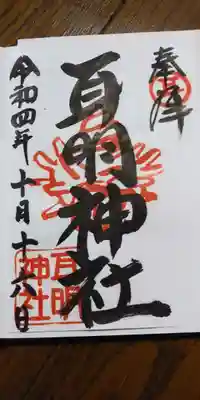 奉拝
耳明神社
令和四年十月十六日
耳明
神社